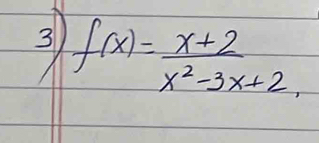 3) f(x) = x+2 / x²-3x+2,